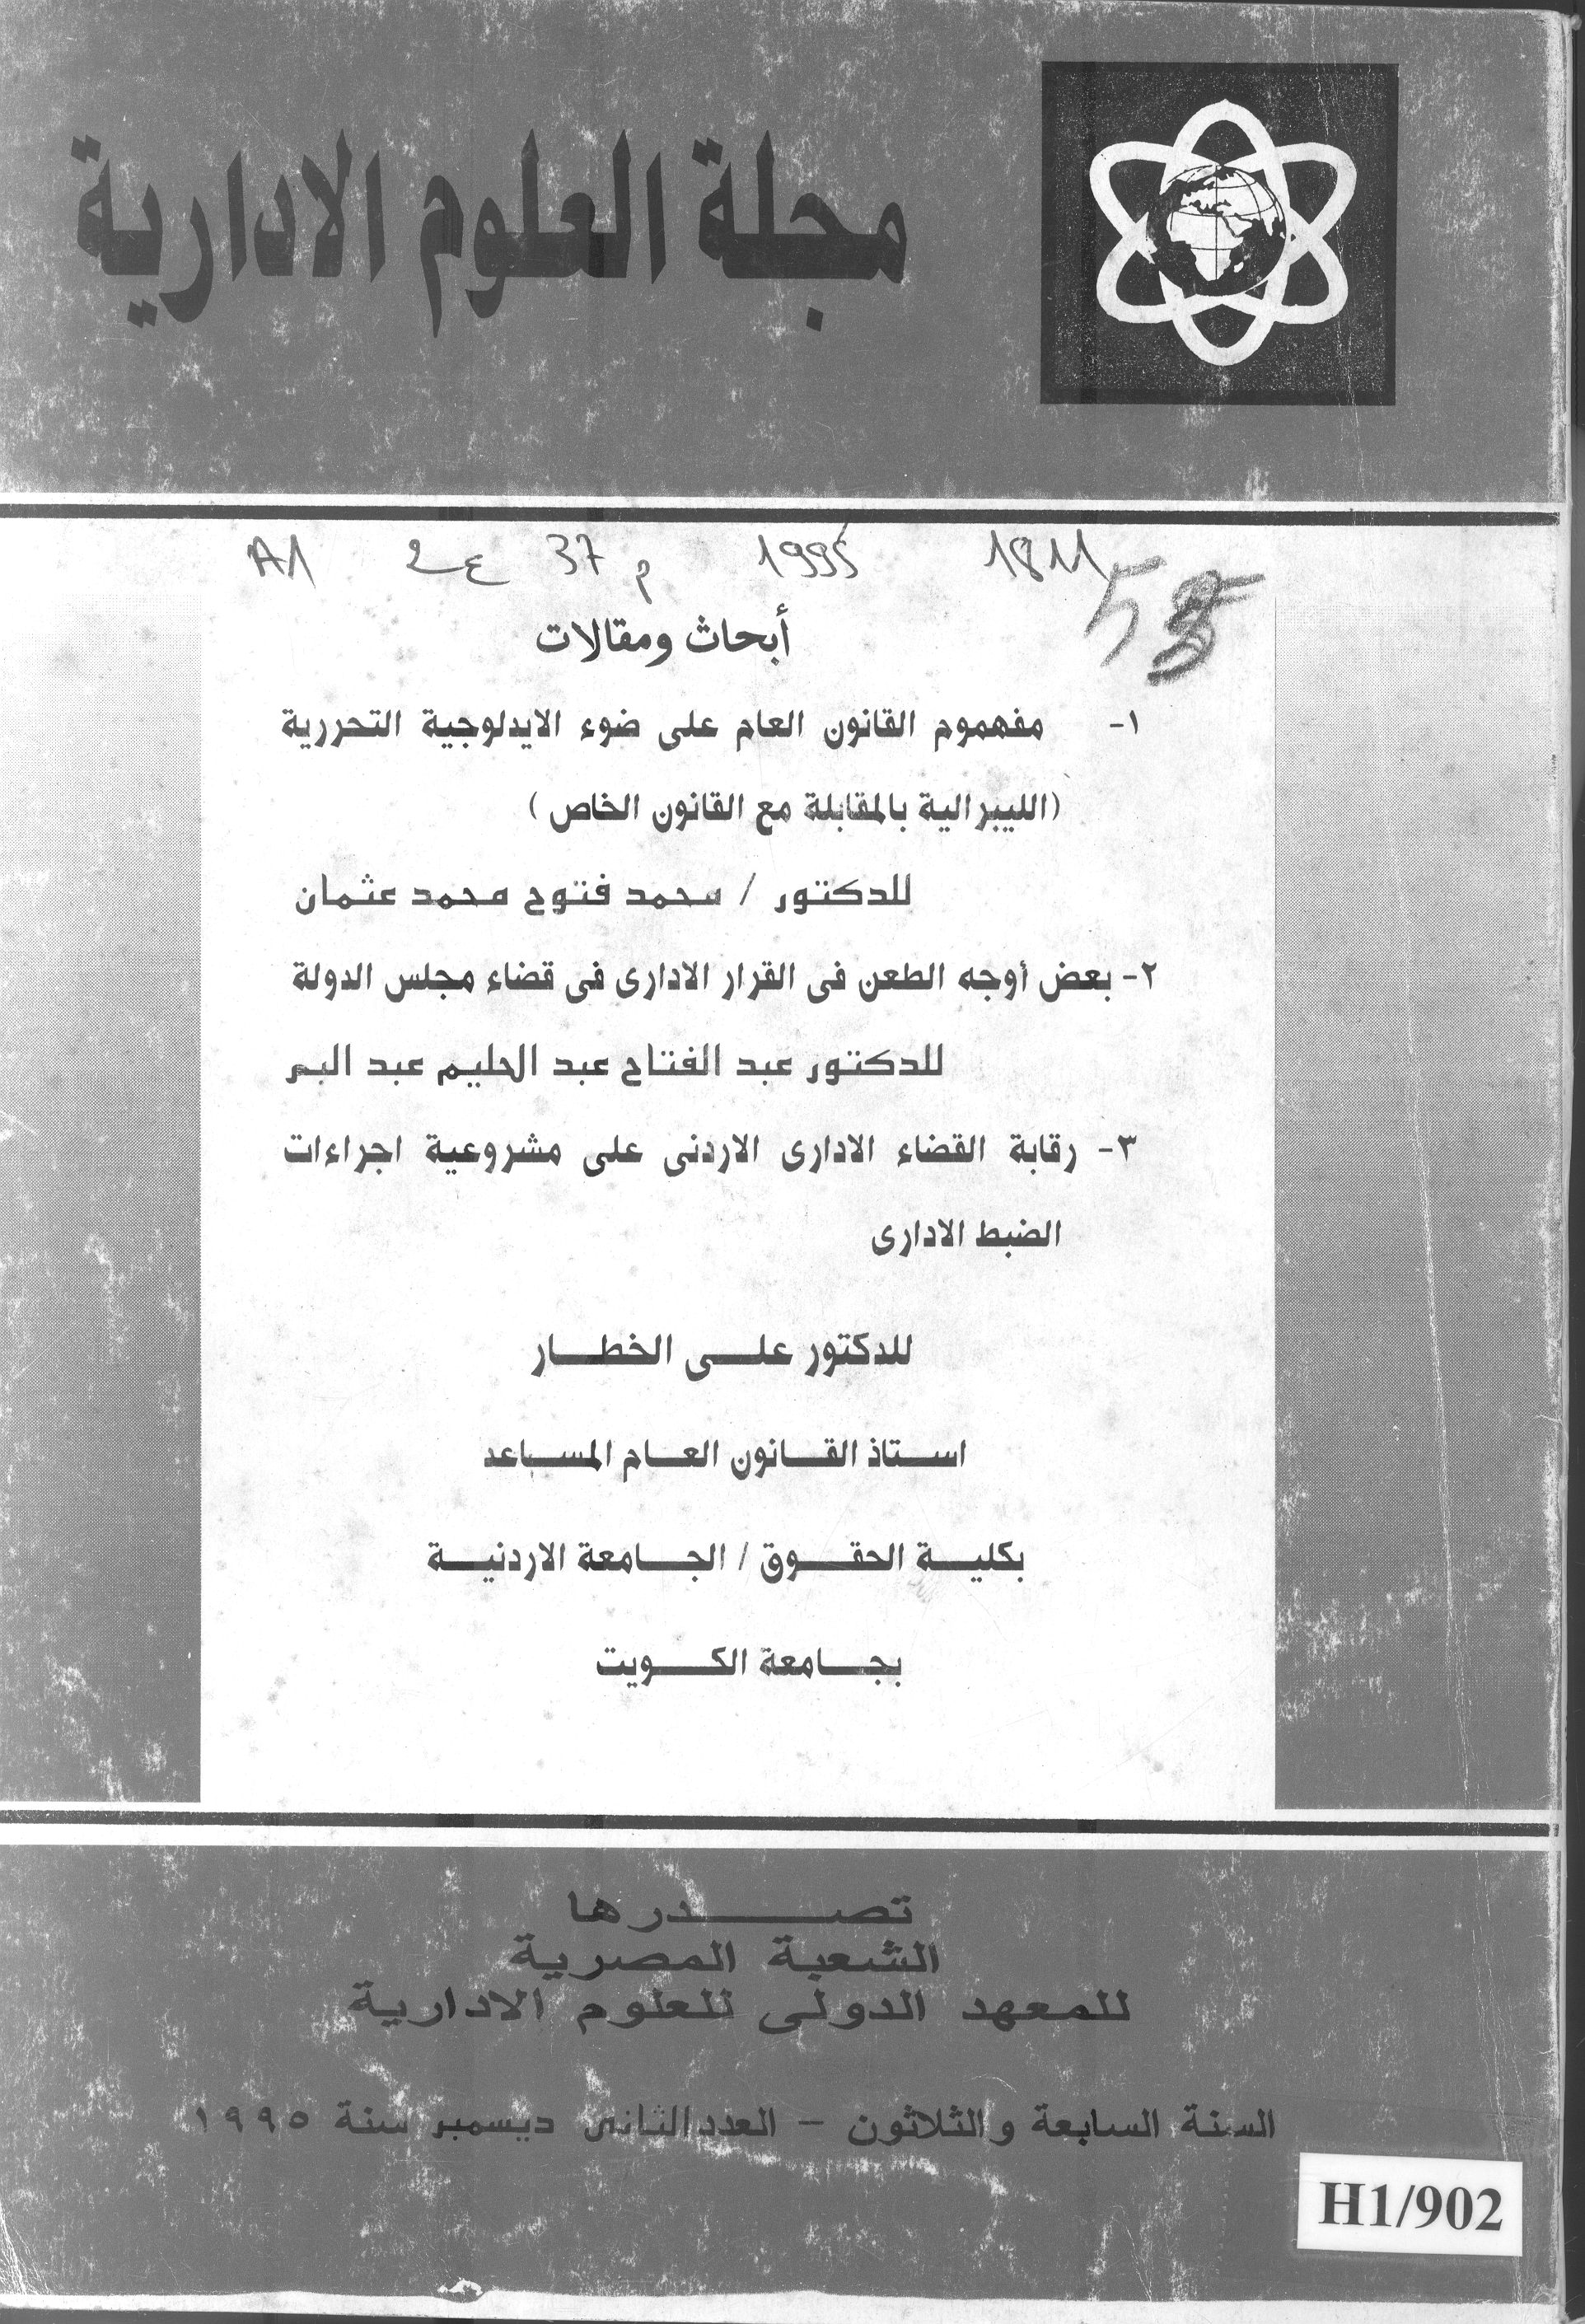 مجلة العلوم الادارية
A1 ع2 م 37 1995 1811
أبحاث ومقالات
١- مفهموم القانون العام على ضوء الايدلوجية التحررية
(الليبرالية بالمقابلة مع القانون الخاص )
للدكتور / محمد فتوح محمد عثمان
٢- بعض أوجه الطعن فى القرار الادارى فى قضاء مجلس الدولة
للدكتور عبد الفتاح عبد الحليم عبد البر
٣- رقابة القضاء الادارى الاردنى على مشروعية اجراءات
الضبط الادارى
للدكتور علـــى الخطـــار
اســـتاذ القـــانون العـــام المســـاعد
بكليـــة الحقـــوق / الجـــامعة الاردنيـــة
بجـــامعة الكـــويت
تصـــدرها
الشعبة المصرية
للمعهد الدولى للعلوم الادارية
السنة السابعة والثلاثون - العدد الثانى ديسمبر سنة ١٩٩٥
H1/902